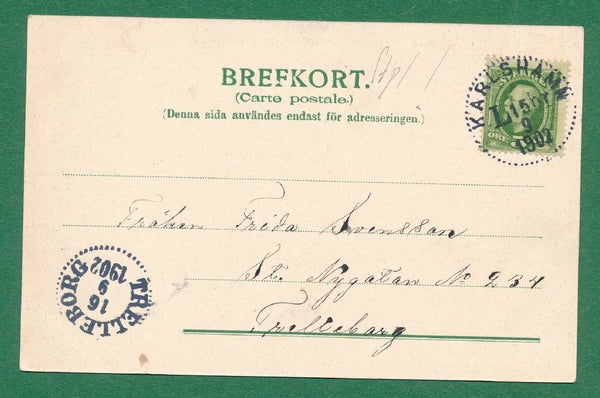 BREFKORT.
(Carte postale.)
(Denna sida användes endast för adresseringen.)
KARLSHAMN
L 15
9
1902
Fröken Frida Svensson
St. Nygatan No 234
Trelleborg
TRELLEBORG
16
9
1902